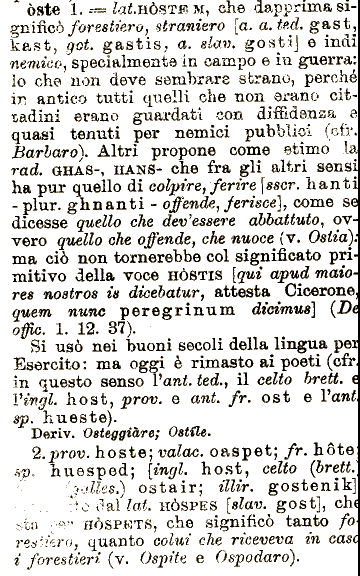 òste 1. = lat. HÒSTEM, che dapprima si-
gnificò forestiero, straniero [a. a. ted. gast,
kast, got. gastis, a. slav. gosti] e indi
nemico, specialmente in campo e in guerra:
lo che non deve sembrare strano, perché
in antico tutti quelli che non erano cit-
tadini erano guardati con diffidenza e
quasi tenuti per nemici pubblici (cfr.
Barbaro). Altri propone come etimo la
rad. GHAS-, HANS- che fra gli altri sensi
ha pur quello di colpire, ferire [sscr. hanti
- plur. ghnanti - offende, ferisce], come se
dicesse quello che dev'essere abbattuto, ov-
vero quello che offende, che nuoce (v. Ostia):
ma ciò non tornerebbe col significato pri-
mitivo della voce HÒSTIS [qui apud maio-
res nostros is dicebatur, attesta Cicerone,
quem nunc peregrinum dicimus] (De
offic. 1. 12. 37).
Si usò nei buoni secoli della lingua per
Esercito: ma oggi è rimasto ai poeti (cfr.
in questo senso l'ant. ted., il celto brett. e
l'ingl. host, prov. e ant. fr. ost e l'ant.
sp. hueste).
Deriv. Osteggiàre; Ostile.
2. prov. hoste; valac. oaspet; fr. hôte;
sp. huesped; [ingl. host, celto (brett.
galles.) ostair; illir. gostenik]
dal lat. HÒSPES [slav. gost], che
sta per HÒSPETS, che significò tanto fo-
restiero, quanto colui che riceveva in casa
i forestieri (v. Ospite e Ospodaro).